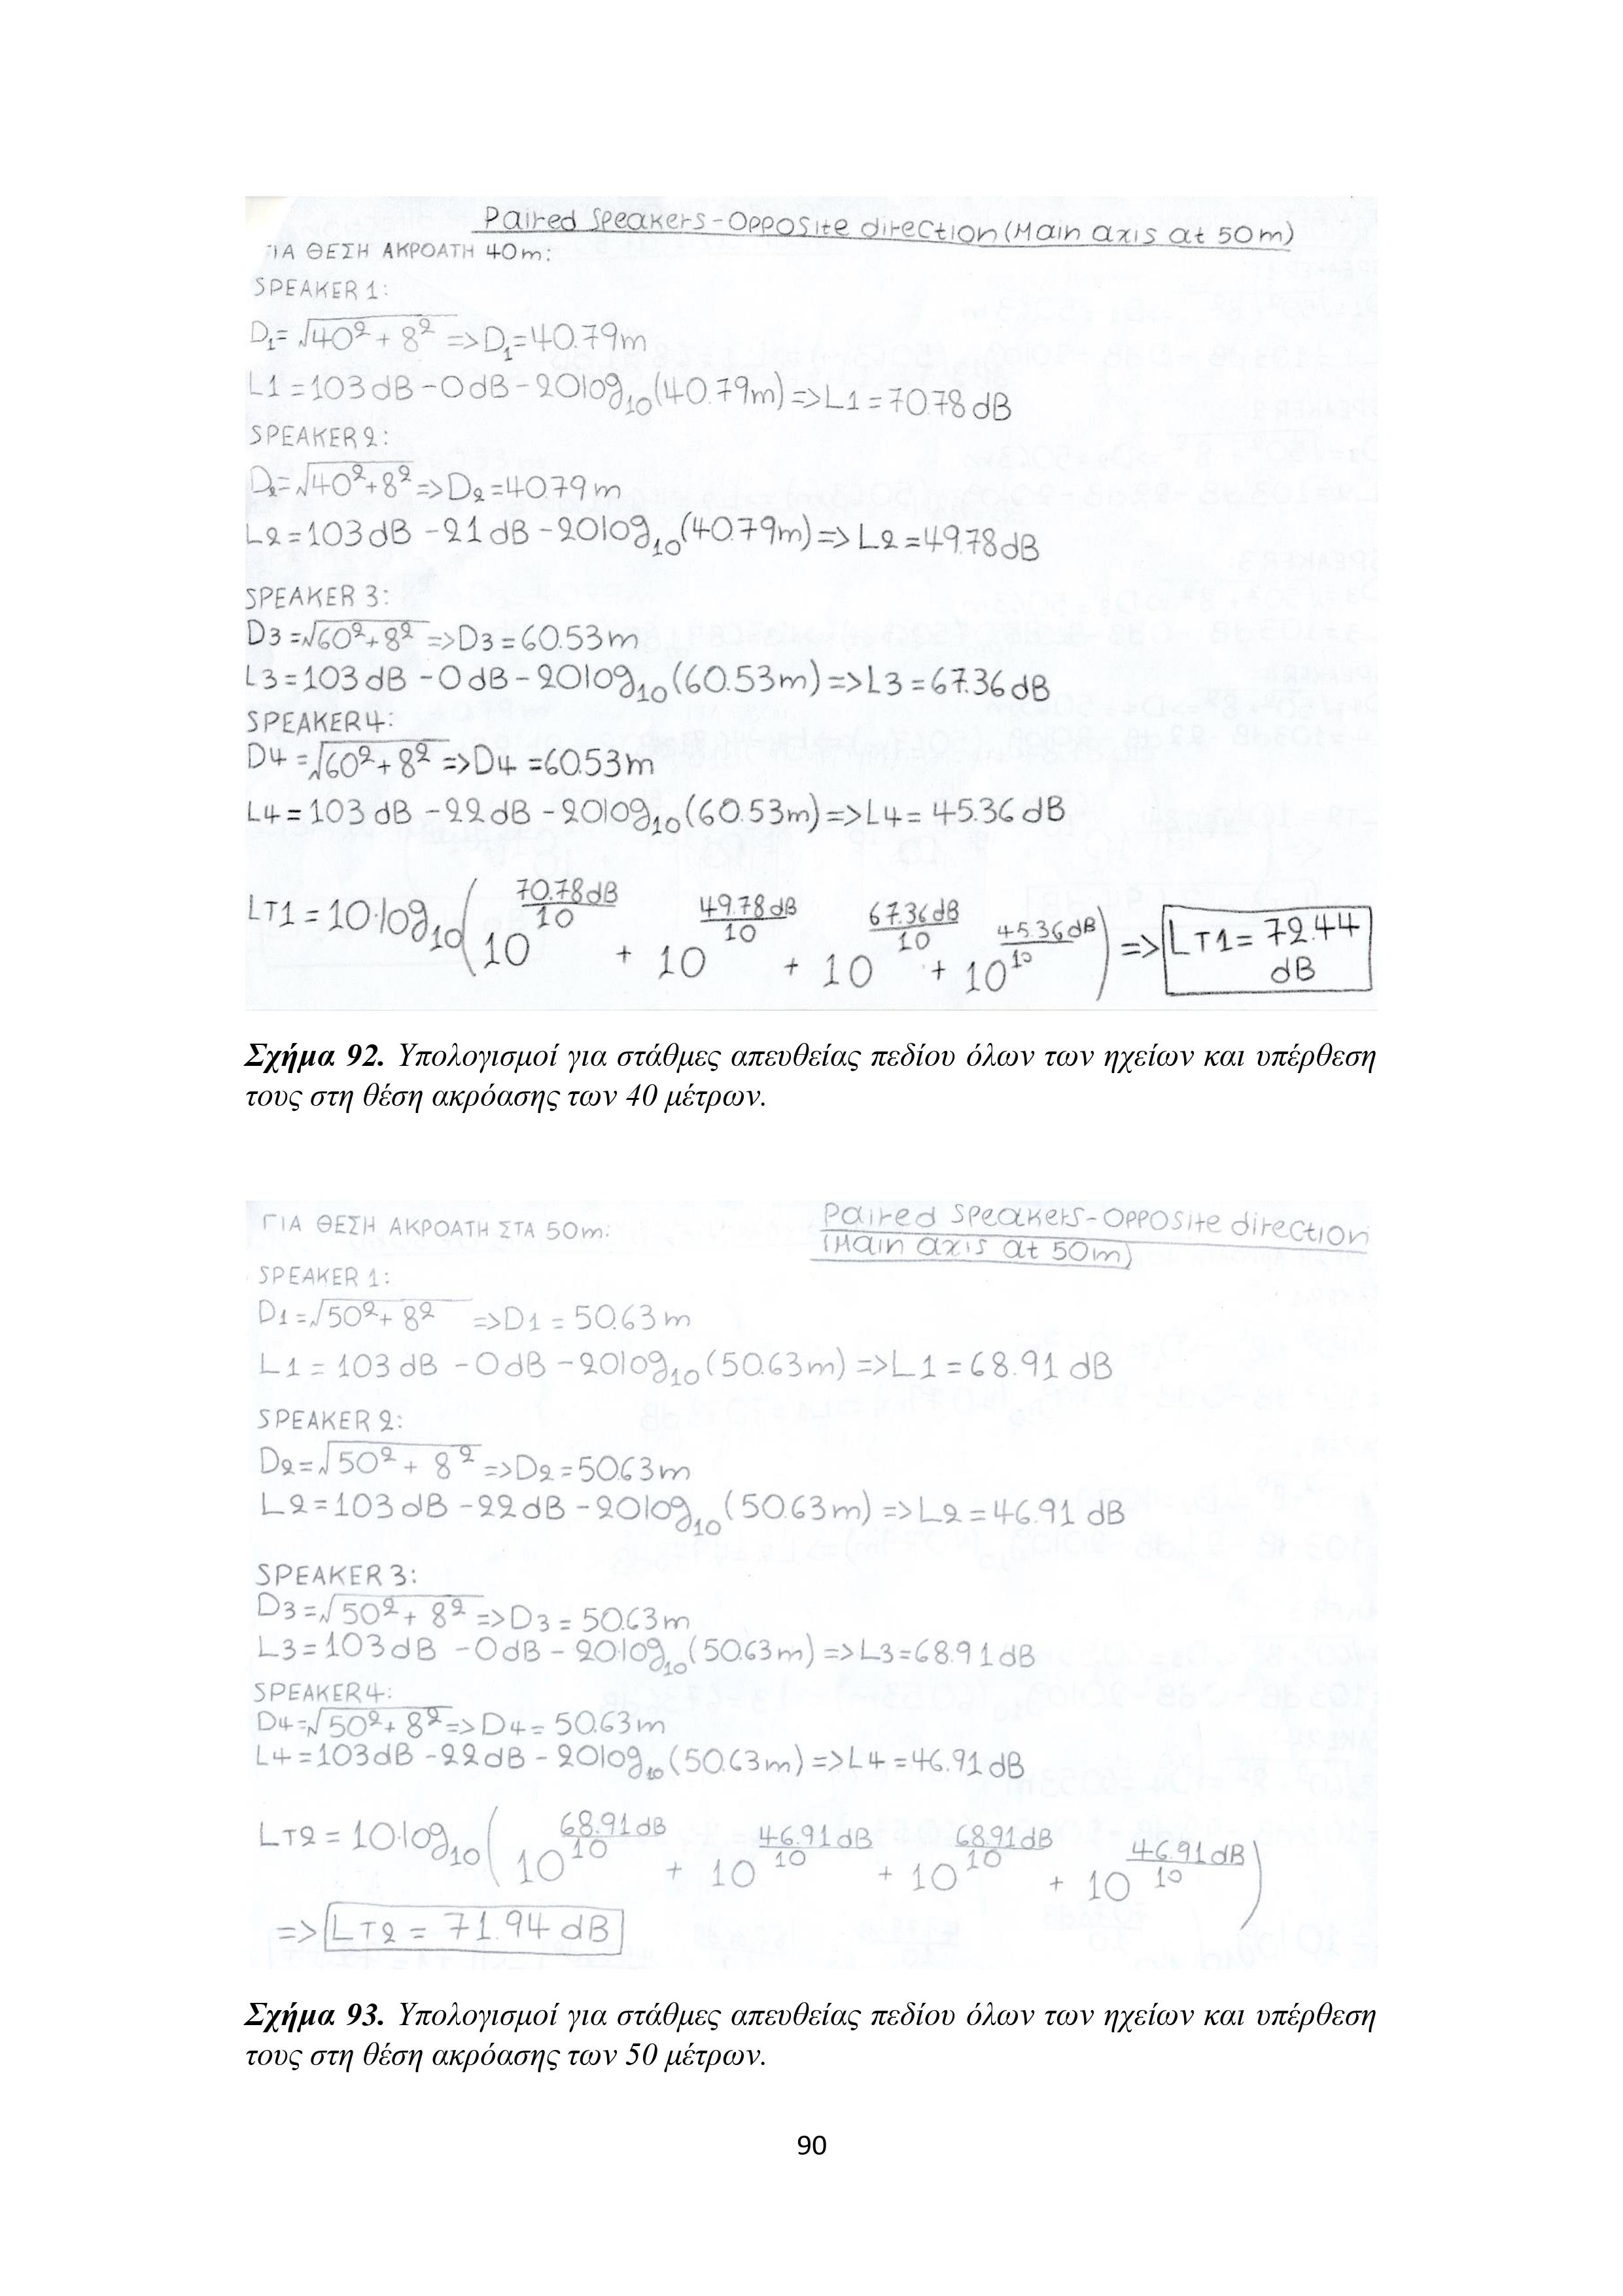 Paired Speakers-Opposite direction (Main axis at 50m)
ΓΙΑ ΘΕΣΗ ΑΚΡΟΑΤΗ 40m:
SPEAKER 1:
D₁=√40²+8² =>D₁=40.79m
L1=103dB-0dB-20log₁₀(40.79m)=>L1=70.78dB
SPEAKER 2:
D₂=√40²+8² =>D2=40.79m
L2=103dB-21dB-20log₁₀(40.79m)=>L2=49.78dB
SPEAKER 3:
D3=√60²+8² =>D3=60.53m
L3=103dB-0dB-20log₁₀(60.53m)=>L3=67.36dB
SPEAKER4:
D4=√60²+8² =>D4=60.53m
L4=103dB-22dB-20log₁₀(60.53m)=>L4=45.36dB
LT1=10·log₁₀(10^(70.78dB/10) + 10^(49.78dB/10) + 10^(67.36dB/10) + 10^(45.36dB/10)) => LT1=72.44 dB
Σχήμα 92. Υπολογισμοί για στάθμες απευθείας πεδίου όλων των ηχείων και υπέρθεση
τους στη θέση ακρόασης των 40 μέτρων.
Paired Speakers-Opposite direction
(Main axis at 50m)
ΓΙΑ ΘΕΣΗ ΑΚΡΟΑΤΗ ΣΤΑ 50m:
SPEAKER 1:
D1=√50²+8² =>D1=50.63m
L1=103dB-0dB-20log₁₀(50.63m)=>L1=68.91 dB
SPEAKER 2:
D2=√50²+8² =>D2=50.63m
L2=103dB-22dB-20log₁₀(50.63m)=>L2=46.91 dB
SPEAKER 3:
D3=√50²+8² =>D3=50.63m
L3=103dB-0dB-20·log₁₀(50.63m)=>L3=68.91dB
SPEAKER4:
D4=√50²+8² =>D4=50.63m
L4=103dB-22dB-20log₁₀(50.63m)=>L4=46.91dB
LT2=10·log₁₀(10^(68.91dB/10) + 10^(46.91dB/10) + 10^(68.91dB/10) + 10^(46.91dB/10))
=> LT2=71.94 dB
Σχήμα 93. Υπολογισμοί για στάθμες απευθείας πεδίου όλων των ηχείων και υπέρθεση
τους στη θέση ακρόασης των 50 μέτρων.
90